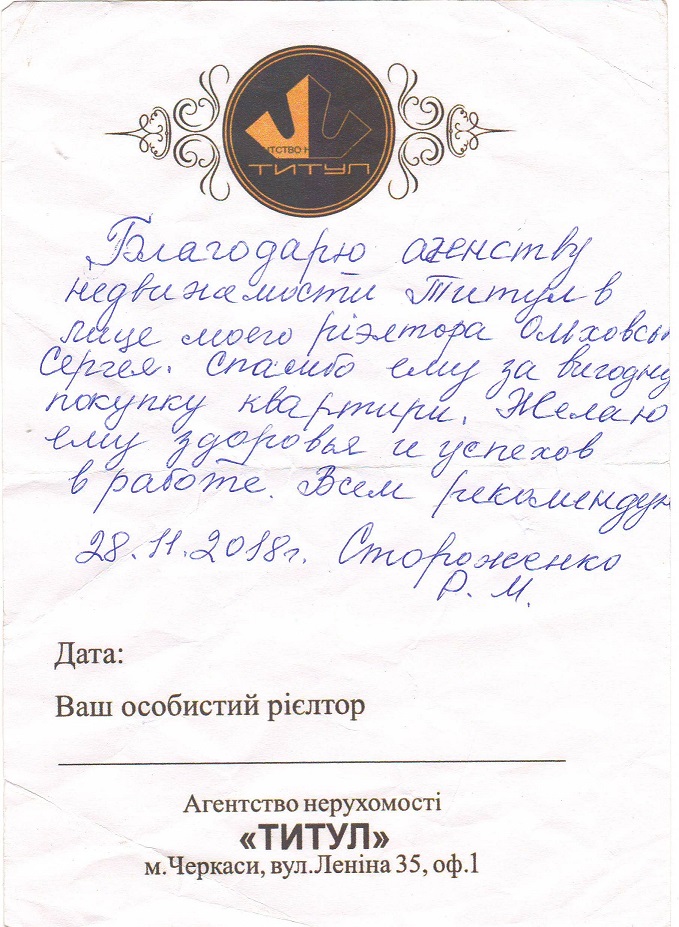 ТИТУЛ
Благодарю агенству
недвижамости Титул в
лице моего ріэлтора Ольховсь
Сергея. Спасибо ему за вигодну
покупку квартири. Желаю
ему здоровья и успехов
в работе. Всем рекоменду
28.11.2018г. Стороженко
Р. М.
Дата:
Ваш особистий рієлтор
Агентство нерухомості
«ТИТУЛ»
м.Черкаси, вул.Леніна 35, оф.1